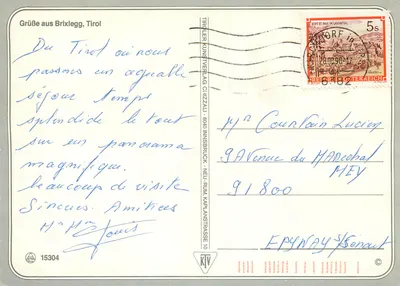 Grüße aus Brixlegg, Tirol
Du Tirol où nous
passons un agréable
séjour temps
splendide le tout
sur un panorama
magnifique.
beaucoup de visite
Sincères Amitiés
Mr Mme
Louis
15304
TIROLER KUNSTVERLAG CHIZZALI · 6040 INNSBRUCK - NEU-RUM, KAPLANSTRASSE 10
KTV
5s
6392
Mr Countain Lucien
9 Avenue du Maréchal
NEY
91800
EPYNAY s/Senart
©